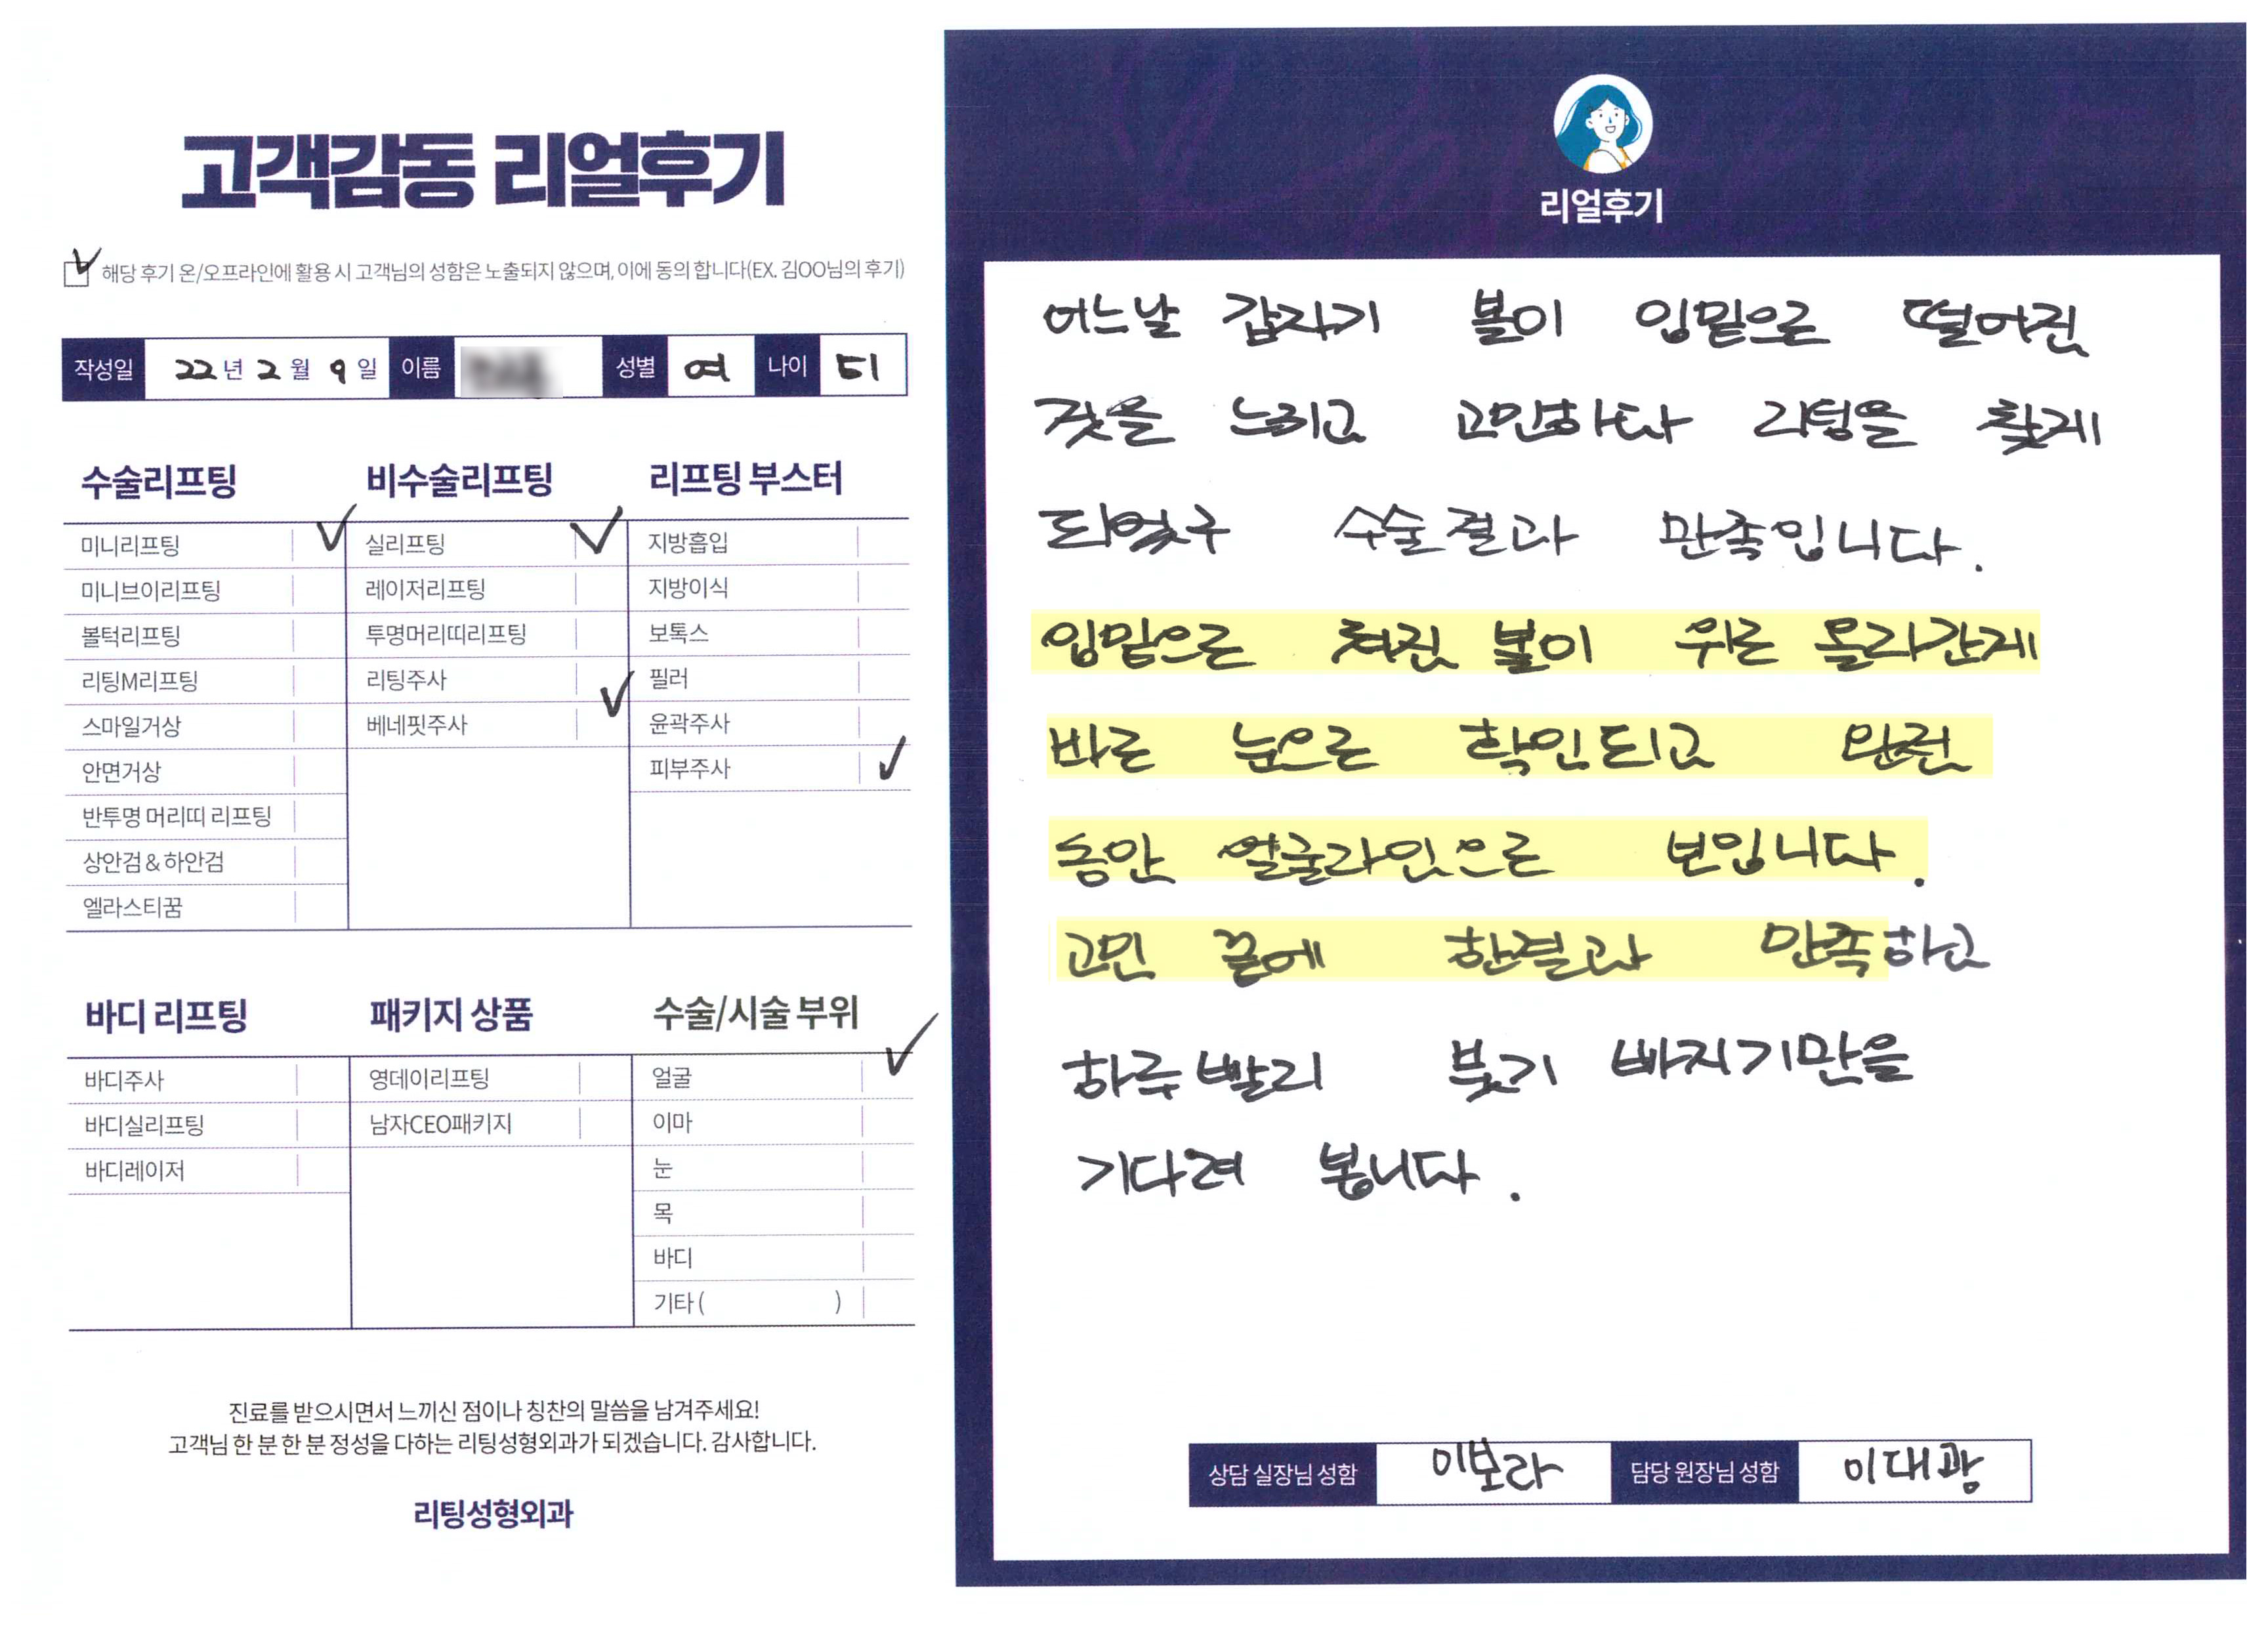 고객감동 리얼후기
해당 후기 온/오프라인에 활용 시 고객님의 성함은 노출되지 않으며, 이에 동의 합니다(EX. 김OO님의 후기)
작성일 22년 2월 9일 이름 성별 여 나이 51
수술리프팅
미니리프팅
미니브이리프팅
볼턱리프팅
리팅M리프팅
스마일거상
안면거상
반투명 머리띠 리프팅
상안검&하안검
엘라스티꿈
비수술리프팅
실리프팅
레이저리프팅
투명머리띠리프팅
리팅주사
베네핏주사
리프팅 부스터
지방흡입
지방이식
보톡스
필러
윤곽주사
피부주사
바디 리프팅
바디주사
바디실리프팅
바디레이저
패키지 상품
영데이리프팅
남자CEO패키지
수술/시술 부위
얼굴
이마
눈
목
바디
기타 ( )
진료를 받으시면서 느끼신 점이나 칭찬의 말씀을 남겨주세요!
고객님 한 분 한 분 정성을 다하는 리팅성형외과가 되겠습니다. 감사합니다.
리팅성형외과
리얼후기
어느날 갑자기 볼이 입밑으로 떨어진
것을 느끼고 고민하다 리팅을 찾게
되었구 수술결과 만족입니다.
입밑으로 쳐진 볼이 위로 올라간게
바로 눈으로 확인되고 완전
동안 얼굴라인으로 보입니다.
고민 끝에 한결과 만족하고
하루빨리 붓기 빠지기만을
기다려 봅니다.
상담 실장님 성함 이보라 담당 원장님 성함 이대광